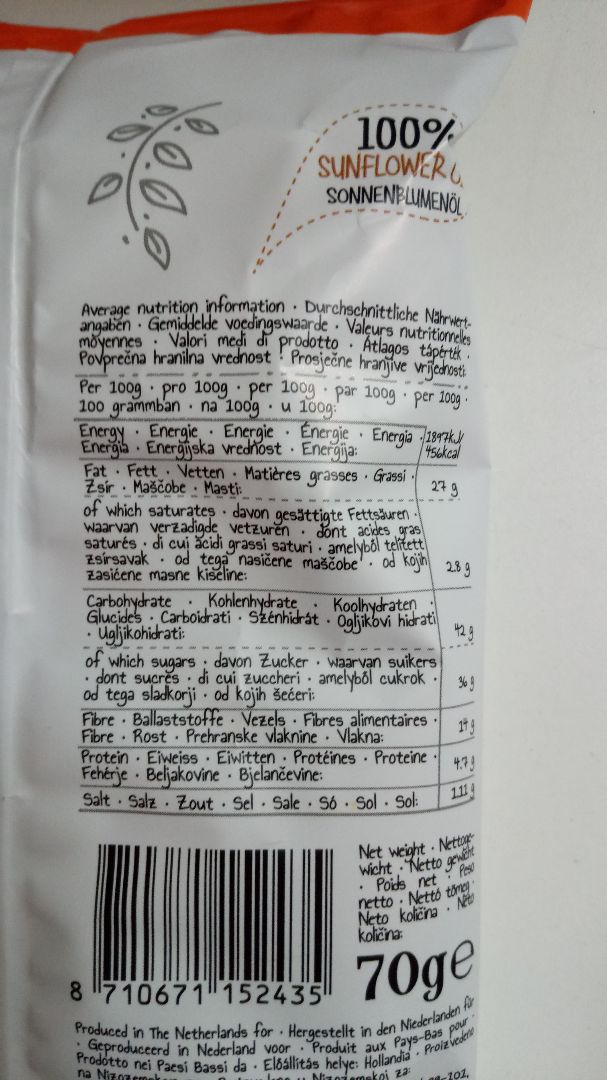 100%
SUNFLOWER
SONNENBLUMENÖL
Average nutrition information · Durchschnittliche Nährwert-
angaben · Gemiddelde voedingswaarde · Valeurs nutritionnelles
moyennes · Valori medi di prodotto · Átlagos tápérték ·
Povprečna hranilna vrednost · Prosječne hranjive vrijednosti
Per 100g · pro 100g · per 100g · par 100g · per 100g ·
100 grammban · na 100g · u 100g:
Energy · Energie · Energie · Énergie · Energia · 1897kJ/
Energia · Energijska vrednost · Energija: 456kcal
Fat · Fett · Vetten · Matières grasses · Grassi ·
Zsír · Maščobe · Masti: 27 g
of which saturates · davon gesättigte Fettsäuren ·
waarvan verzadigde vetzuren · dont acides gras
saturés · di cui acidi grassi saturi · amelyből telített
zsírsavak · od tega nasičene maščobe · od kojih
zasićene masne kiseline: 2.8 g
Carbohydrate · Kohlenhydrate · Koolhydraten ·
Glucides · Carboidrati · Szénhidrát · Ogljikovi hidrati
· Ugljikohidrati: 42 g
of which sugars · davon Zucker · waarvan suikers
· dont sucres · di cui zuccheri · amelyből cukrok ·
od tega sladkorji · od kojih šećeri: 36 g
Fibre · Ballaststoffe · Vezels · Fibres alimentaires ·
Fibre · Rost · Prehranske vlaknine · Vlakna: 19 g
Protein · Eiweiss · Eiwitten · Protéines · Proteine ·
Fehérje · Beljakovine · Bjelančevine: 4.7 g
Salt · Salz · Zout · Sel · Sale · Só · Sol · Sol: 1.11 g
Net weight · Nettoge-
wicht · Netto gewicht
· Poids net · Peso
netto · Nettó tömeg ·
Neto količina · Neto
količina:
70g e
8 710671 152435
Produced in The Netherlands for · Hergestellt in den Niederlanden für
· Geproduceerd in Nederland voor · Produit aux Pays-Bas pour ·
Prodotto nei Paesi Bassi da · Előállítás helye: Hollandia · Proizvedeno
na za: